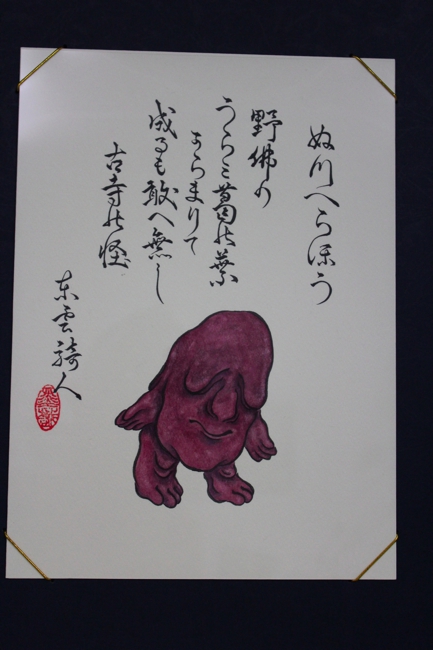 ぬ川へらほう
野佛の
うらミ葛の葉
からまりて
成るも敢へ無し
古寺の怪
東雲騎人